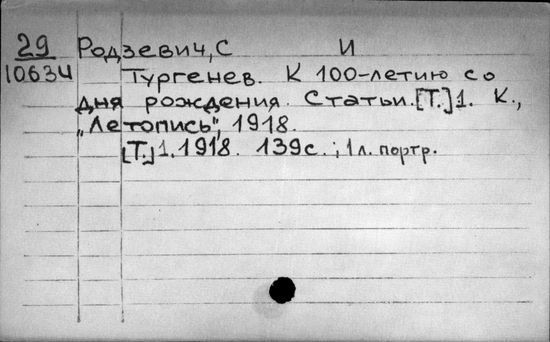 29 Родзевич, С И
10634 Тургенев. К 100-летию со
дня рождения. Статьи. [Т.] 1. К.,
„Летопись", 1918.
[Т.] 1. 1918. 139с.; 1 л. портр.